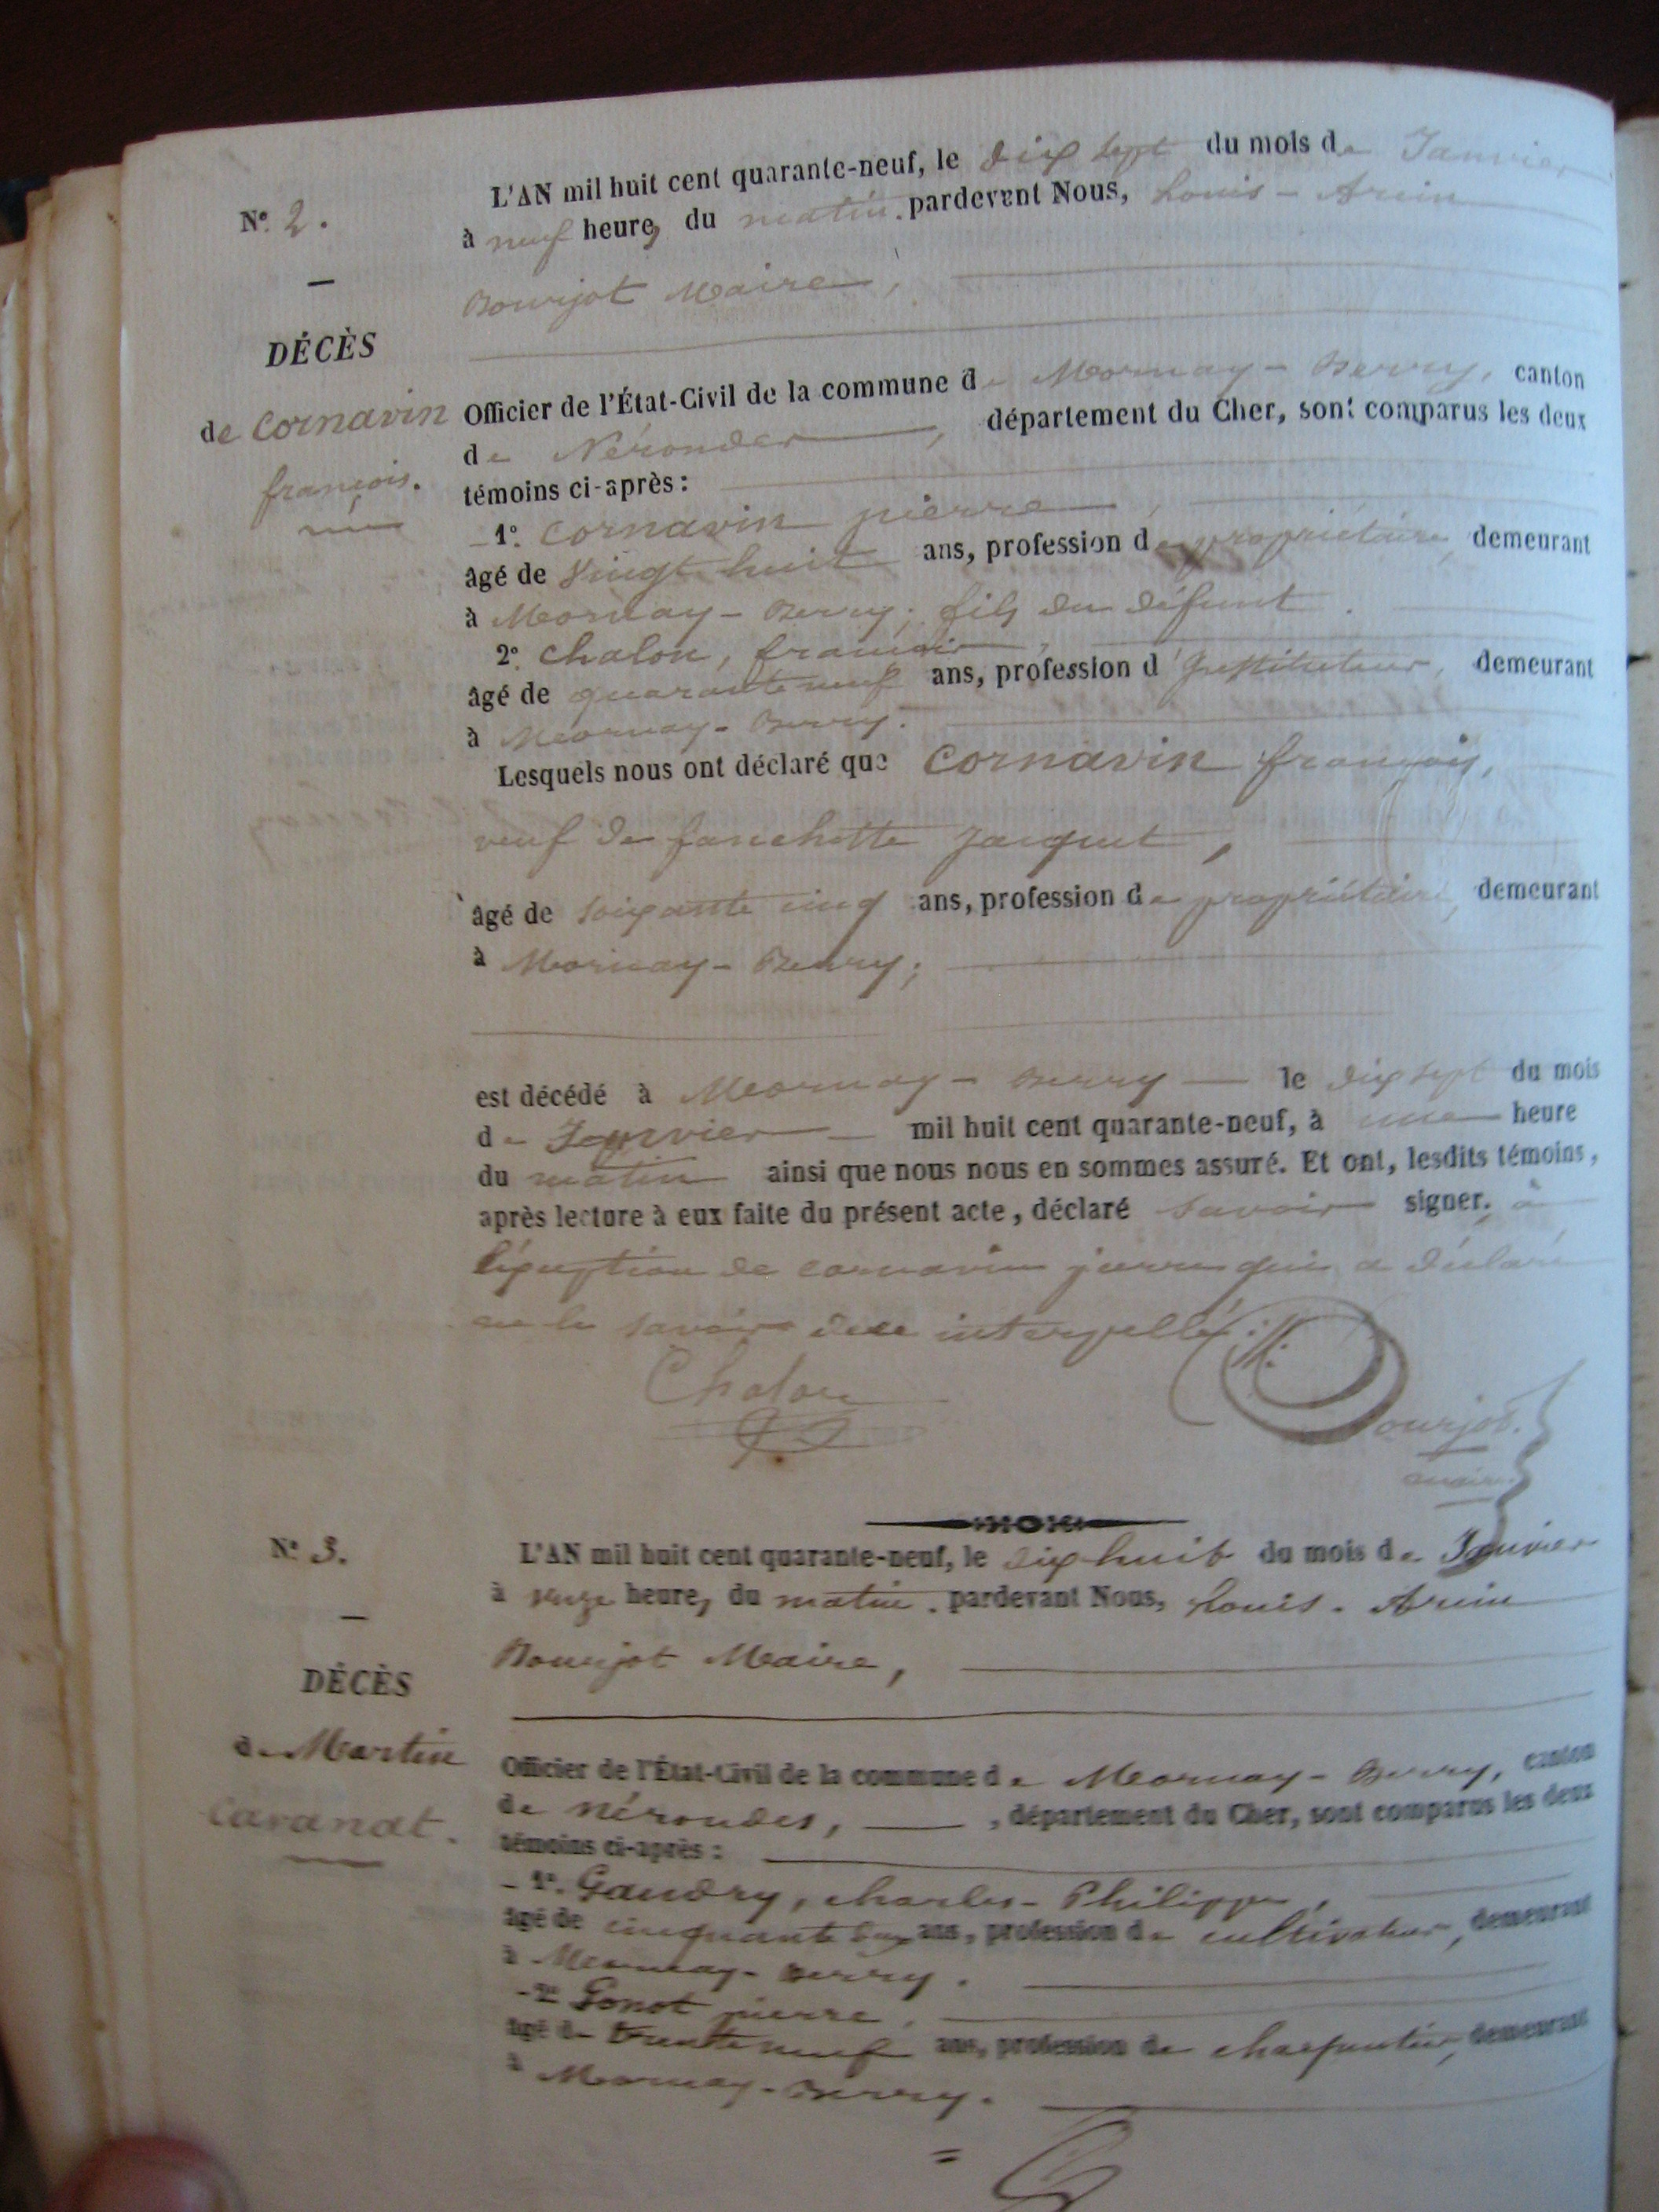 L'AN mil huit cent quarante-neuf, le dix sept du mois de Janvier
N° 2.
à neuf heures, du matin. pardevent Nous, Louis - Arsin
Bourjot Maire,
DÉCÈS
Officier de l'État-Civil de la commune de Mornay - Berry, canton
de cornavin
de Nérondes, département du Cher, sont comparus les deux
françois.
témoins ci-après :
1° cornavin pierre,
âgé de vingt huit ans, profession de propriétaire, demeurant
à Mornay - Berry; fils du défunt.
2° chalon, françois,
âgé de quarante neuf ans, profession d'Instituteur, demeurant
à Mornay - Berry.
Lesquels nous ont déclaré que cornavin françois,
veuf de fanchette jacquet,
âgé de soixante cinq ans, profession de propriétaire, demeurant
à Mornay - Berry;
est décédé à Mornay - Berry — le dix sept du mois
de Janvier — mil huit cent quarante-neuf, à une heure
du matin ainsi que nous nous en sommes assuré. Et ont, lesdits témoins,
après lecture à eux faite du présent acte, déclaré savoir signer. à
l'exception de cornavin pierre qui a déclaré
ne le savoir de ce interpellé
Chalon
Bourjot.
maire
N° 3.
L'AN mil huit cent quarante-neuf, le dix huit du mois de Janvier
à heures, du matin. pardevant Nous, Louis - Arsin
Bourjot Maire,
DÉCÈS
de Martin
Officier de l'État-Civil de la commune de Mornay - Berry, canton
cavanat.
de nérondes, — , département du Cher, sont comparus les deux
témoins ci-après :
- 1°. Gaudry, charles - Philippe,
âgé de cinquante deux ans, profession de cultivateur, demeurant
à Mornay - Berry.
- 2° Gonot pierre,
âgé de trente neuf ans, profession de charpentier, demeurant
à Mornay - Berry.